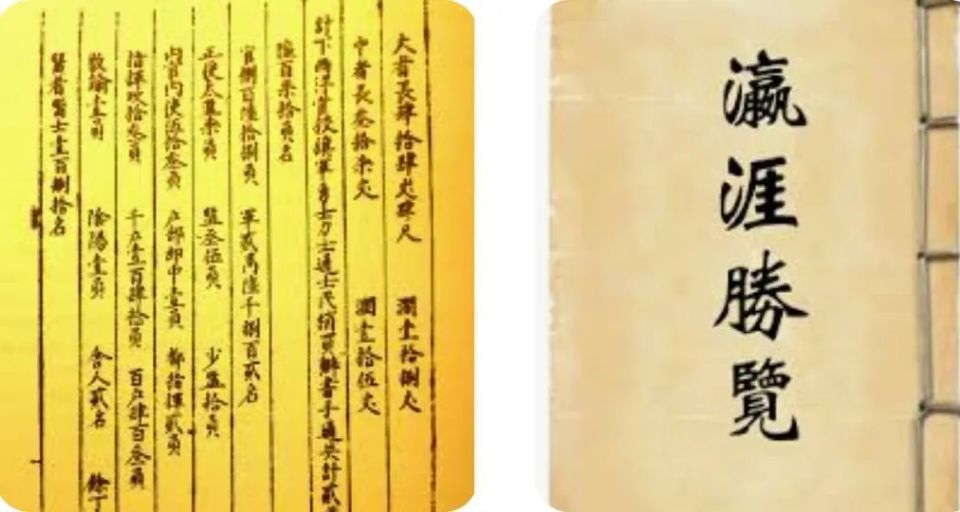 大者長肆拾肆丈肆尺 濶壹拾捌丈
中者長叁拾柒丈 濶壹拾伍丈
計下西洋官校旗軍勇士力士通士民稍買辦書手通共計貳
陸百柒拾員名
官捌百陸拾捌員 軍貳萬陸千捌百貳名
正使太監柒員 監丞伍員 少監拾員
內官內使伍拾叁員 戶部郎中壹員 都指揮貳員
指揮玖拾叁員 千戶壹百肆拾員 百戶肆百叁員
教諭壹員 陰陽壹員 舍人貳名 餘丁
醫者醫士壹百捌拾名
瀛涯勝覽